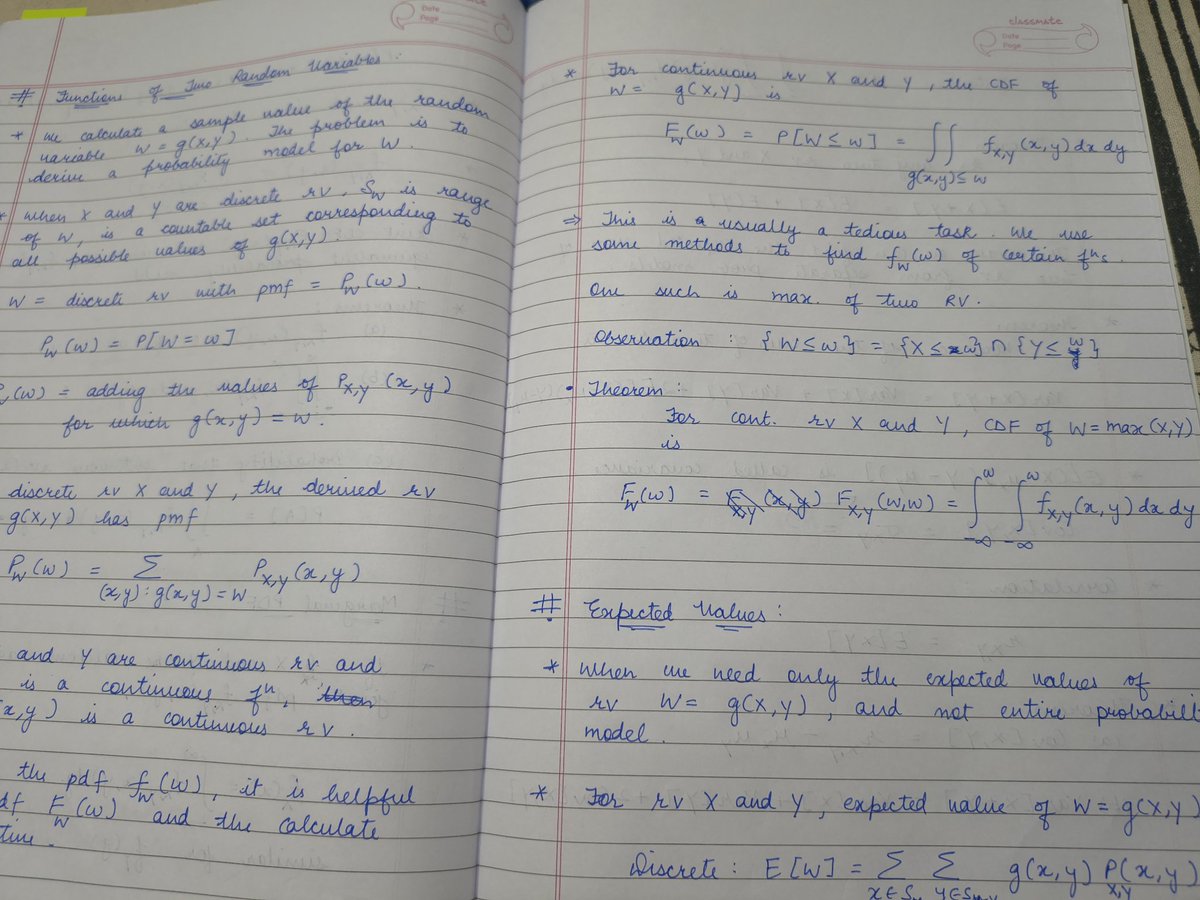 Date
Page
# Functions of Two Random Variables :
* We calculate a sample value of the random
variable W = g(X,Y). The problem is to
derive a probability model for W.
* When X and Y are discrete rv, S_W is range
of W, is a countable set corresponding to
all possible values of g(X,Y).
W = discrete rv with pmf = P_W(w).
P_W(w) = P[W = w]
P_W(w) = adding the values of P_X,Y(x,y)
for which g(x,y) = w.
discrete rv X and Y, the derived rv
g(X,Y) has pmf
P_W(w) = Σ P_X,Y(x,y)
(x,y): g(x,y) = W
and Y are continuous rv and
is a continuous fⁿ, then
(x,y) is a continuous rv.
the pdf f_W(w), it is helpful
df F_W(w) and the calculate
classmate
Date
Page
* For continuous rv X and Y, the CDF of
W = g(X,Y) is
F_W(w) = P[W ≤ w] = ∫∫ f_X,Y(x,y) dx dy
g(x,y) ≤ w
⇒ This is a usually a tedious task. We use
some methods to find f_W(w) of certain fⁿs.
One such is max. of two RV.
Observation : {W ≤ w} = {X ≤ w} ∩ {Y ≤ w}
• Theorem :
For cont. rv X and Y, CDF of W = max(X,Y)
is
F_W(w) = F_X,Y(x,y) F_X,Y(w,w) = ∫_-∞^w ∫_-∞^w f_X,Y(x,y) dx dy
# Expected Values :
* When we need only the expected values of
rv W = g(X,Y), and not entire probabilit
model.
* For rv X and Y, expected value of W = g(X,Y)
Discrete : E[W] = Σ Σ g(x,y) P_X,Y(x,y)